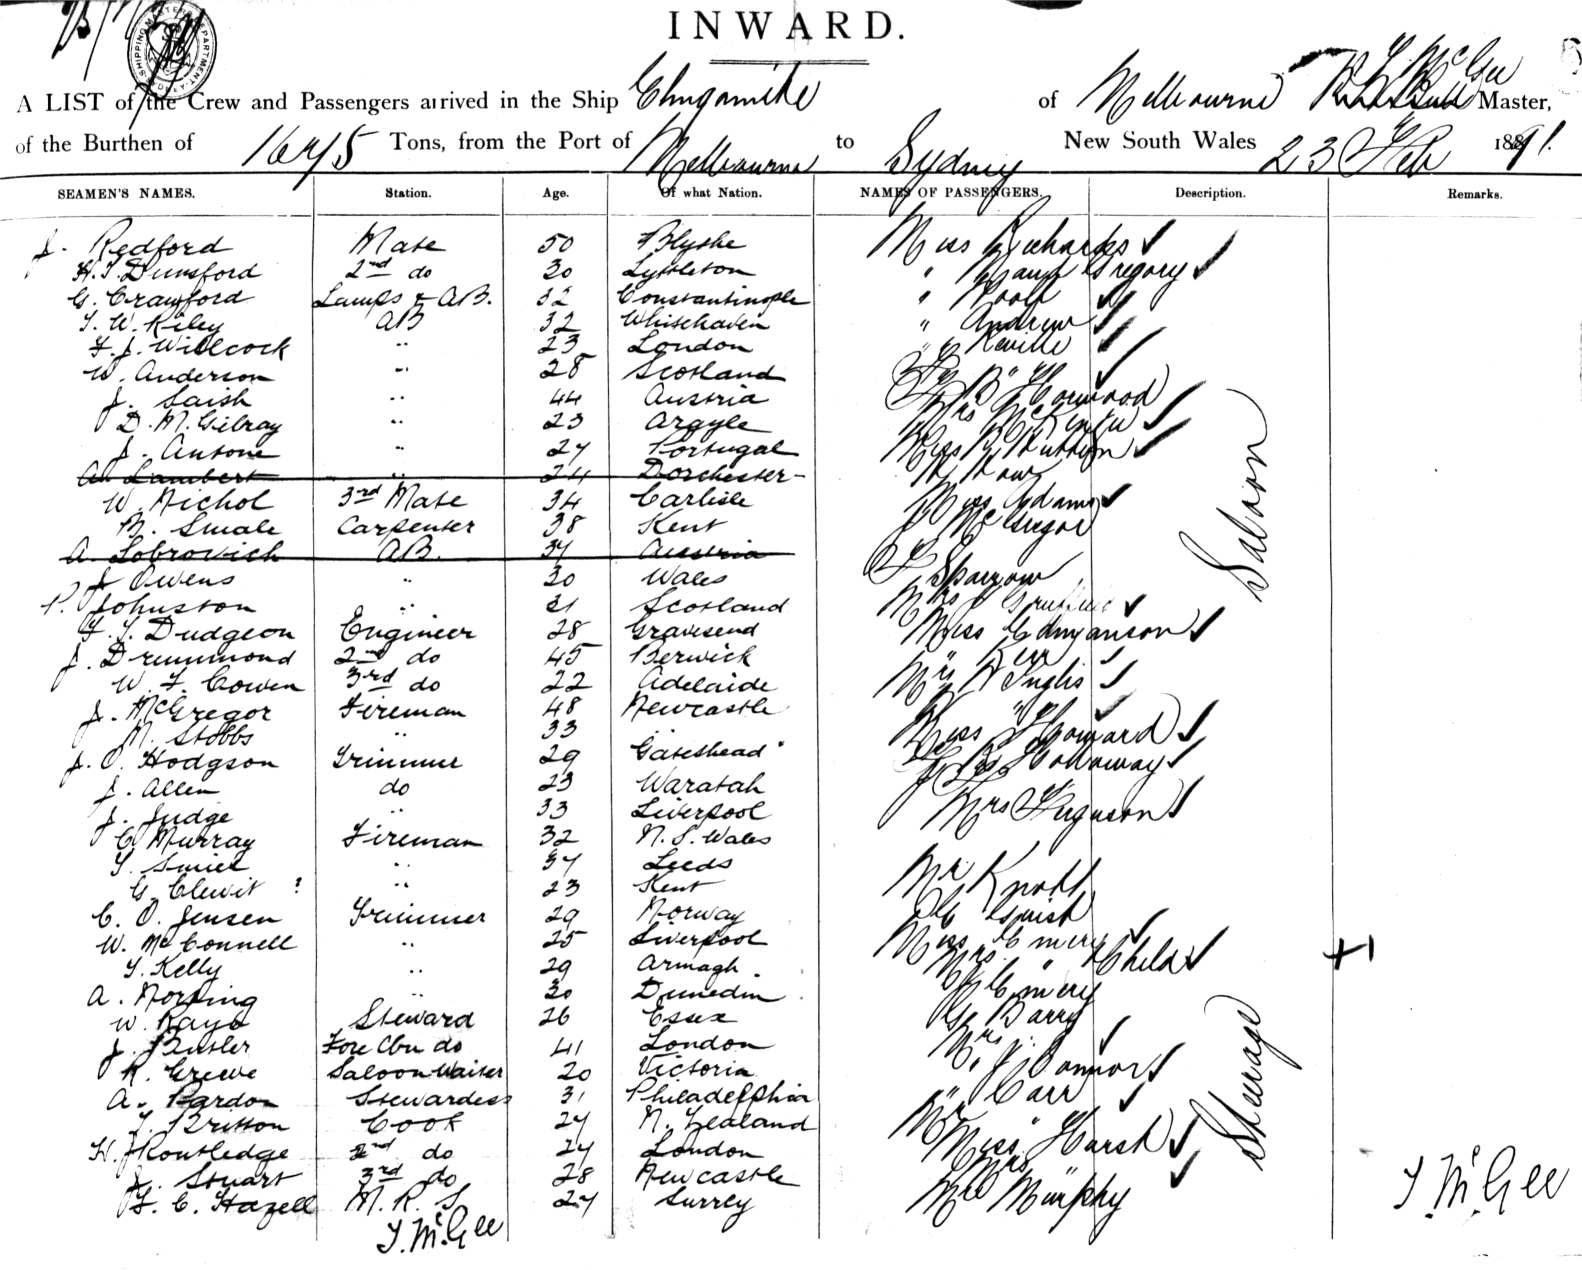 INWARD.
SHIPPING MASTER'S DEPARTMENT
A LIST of the Crew and Passengers arrived in the Ship Elingamite of Melbourne T. McGee Master,
of the Burthen of 1675 Tons, from the Port of Melbourne to Sydney New South Wales 23 Feb 1891.
SEAMEN'S NAMES. Station. Age. Of what Nation. NAMES OF PASSENGERS. Description. Remarks.
J. Redford Mate 50 Blythe Miss Richards
H. T. Dunsford 2nd do 30 Lyttleton " Maud Gregory
G. Crawford Lamps & AB. 32 Constantinople " Woolf
T. W. Riley AB 32 Whitehaven " Andrew
F. J. Willcock " 23 London " Neville
W. Anderson " 28 Scotland
J. Saish " 44 Austria Horwood
D. M. Gilray " 23 Argyle Mrs McKenzie
J. Antone " 27 Portugal Miss Hutton
A. Lambert " 24 Dorchester
W. Nichol 3rd Mate 34 Carlisle Miss Adams
M. Smale Carpenter 38 Kent J McGregor
A. Lobrovich AB. 37 Austria
J Owens " 30 Wales Sparrow
P. Johnston " 21 Scotland Mrs
F. T. Dudgeon Engineer 28 Gravesend Miss Edmganson
J. Drummond 2nd do 45 Berwick Kerr
W. F. Cowen 3rd do 22 Adelaide Mrs Inglis
J. McGregor Fireman 48 Newcastle
M. Stobbs " 33 " Miss Howard
J. O. Hodgson Trimmer 29 Gateshead Holloway
J. Allen do 23 Waratah
J. Judge " 33 Liverpool Mrs Ferguson
C. Murray Fireman 32 N. S. Wales
T. Smiel " 37 Leeds Mr Knott
G. Clewit ? " 23 Kent
C. O. Jensen Trimmer 29 Norway
W. McConnell " 25 Liverpool Miss Emery
T. Kelly " 29 Armagh Mrs " Child +1
A. Norring " 30 Dunedin Emery
W. Rayo Steward 26 Essex Barry
J. Butler Fore Cbn do 41 London Mrs "
R. Grewe Saloon Waiter 20 Victoria " J O'Connor
A. Pardon Stewardess 31 Philadelphia " Carr
T. Britton Cook 27 N. Zealand Mr
H. Routledge 2nd do 27 London Miss Harsh
J. Stuart 3rd do 28 Newcastle Mrs "
F. C. Hazell M. R. S. 27 Surrey Murphy
Saloon
Steerage
T. McGee
T. McGee